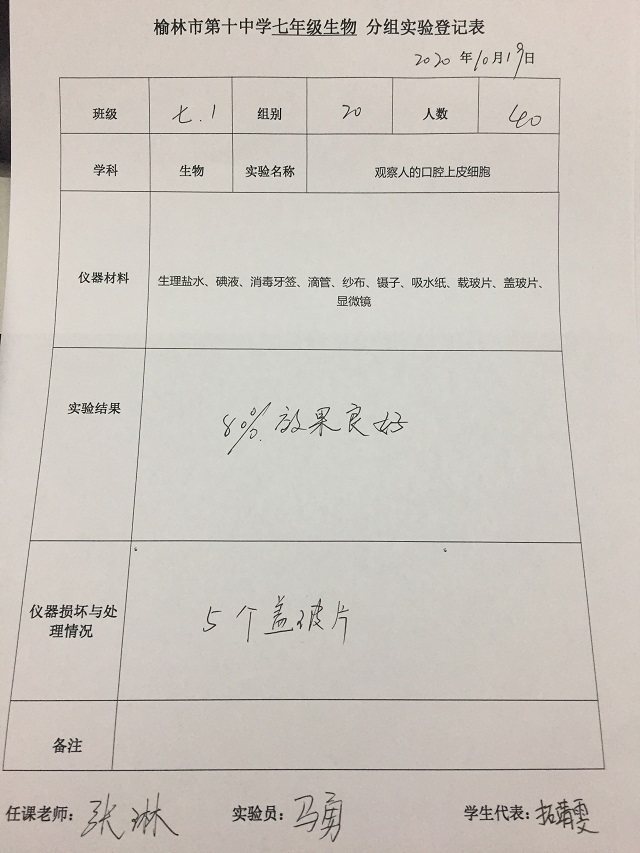 榆林市第十中学七年级生物 分组实验登记表
2020 年10月19日
班级 七.1 组别 20 人数 40
学科 生物 实验名称 观察人的口腔上皮细胞
仪器材料 生理盐水、碘液、消毒牙签、滴管、纱布、镊子、吸水纸、载玻片、盖玻片、
显微镜
实验结果 80% 效果良好
仪器损坏与处
理情况
5个盖玻片
备注
任课老师：张琳 实验员：马勇 学生代表：拓